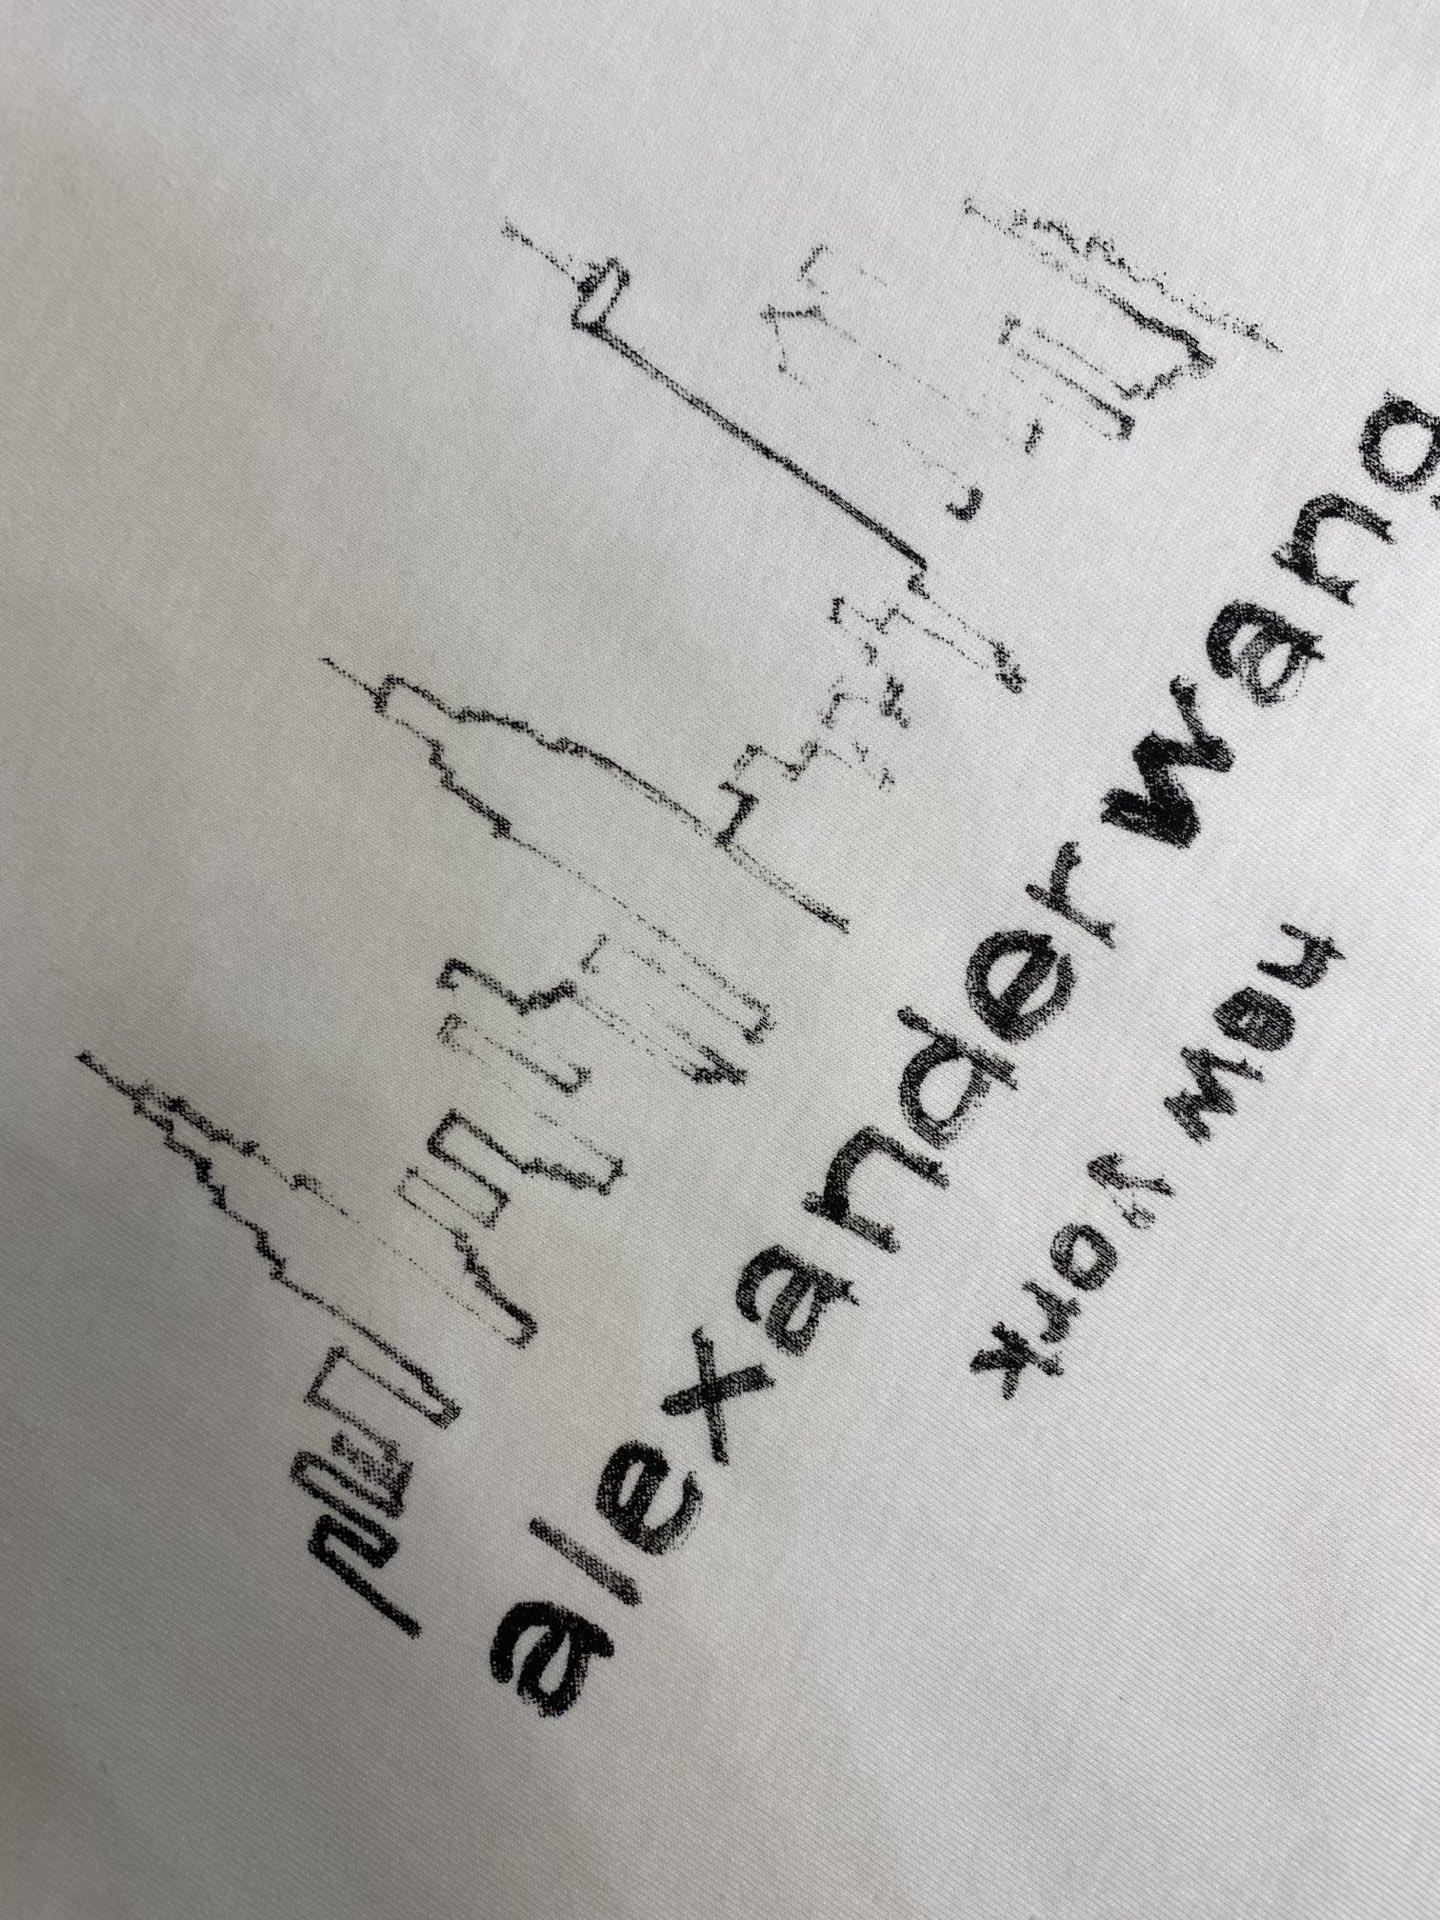 alexanderwang
new york